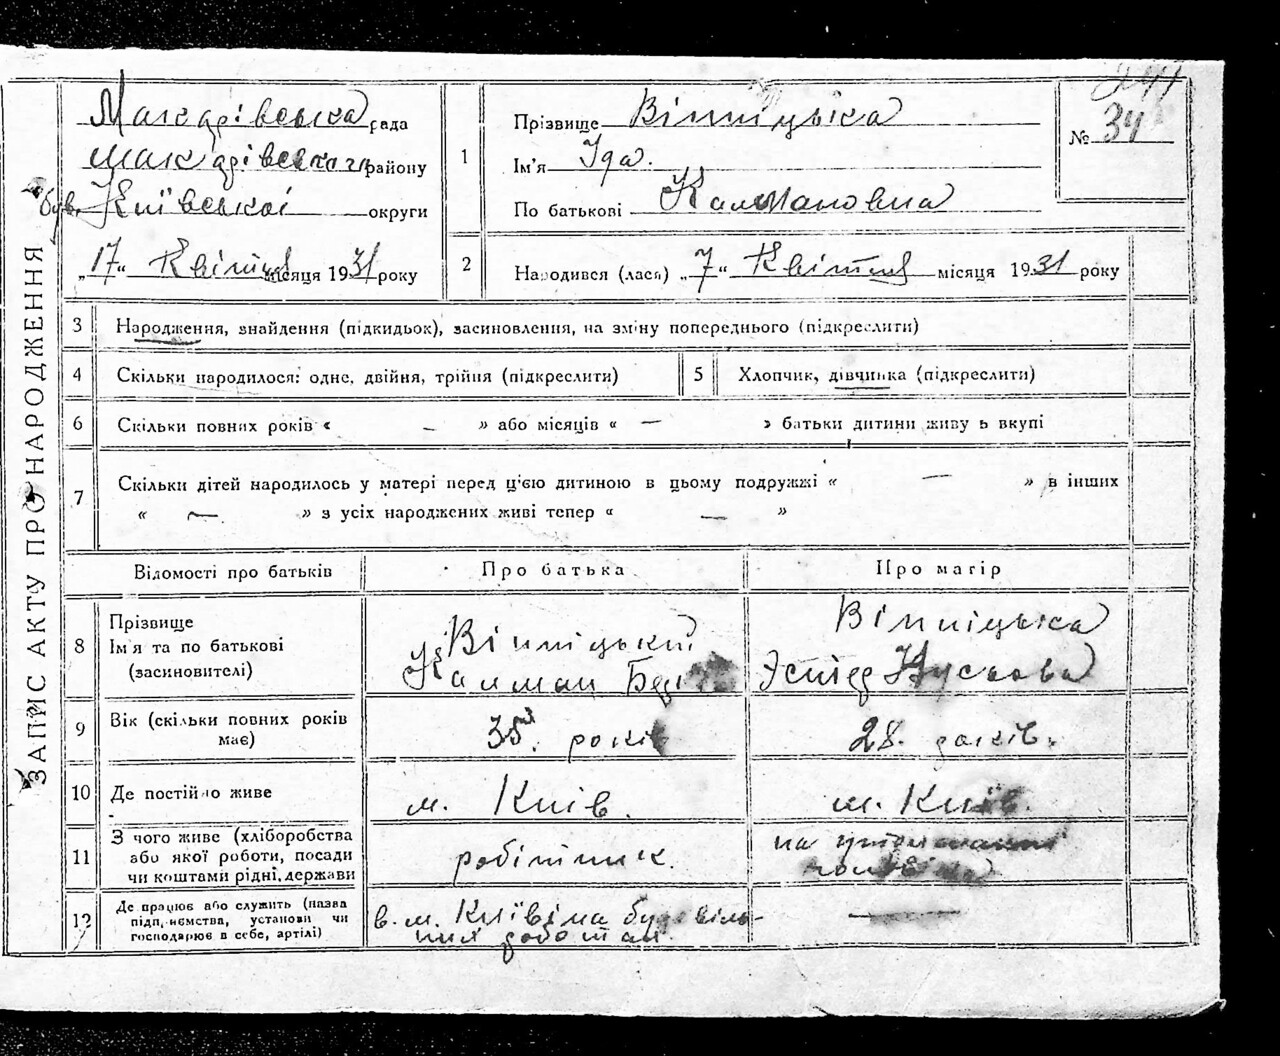 ЗАПИС АКТУ ПРО НАРОДЖЕННЯ
Макарівська рада
Макарівського району
був. Київської округи
„17“ Квітня місяця 1931 року
1
Прізвище Вінніцька
Ім'я Іда.
По батькові Калмановна
№ 34
2
Народився (лася) „7“ Квітня місяця 1931 року
3 Народження, знайдення (підкидьок), засиновлення, на зміну попереднього (підкреслити)
4 Скільки народилося: одне, двійня, трійня (підкреслити)
5 Хлопчик, дівчинка (підкреслити)
6 Скільки повних років « — » або місяців « — » батьки дитини живуть вкупі
7 Скільки дітей народилось у матері перед ц'єю дитиною в цьому подружжі « — » в інших
« — » з усіх народжених живі тепер « — »
Відомості про батьків
Про батька
Про матір
8
Прізвище
Ім'я та по батькові
(засиновителі)
Вінніцький
Калман
Вінніцька
Эстер
9
Вік (скільки повних років
має)
35. років
28. років.
10 Де постійно живе
м. Київ.
м. Київ.
11
З чого живе (хліборобства
або якої роботи, посади
чи коштами рідні, держави
робітник.
на утриманні
чоловіка
12
Де працює або служить (назва
підприємства, установи чи
господарює в себе, артілі)
в. м. Київі на будовіль-
них роботах.
—